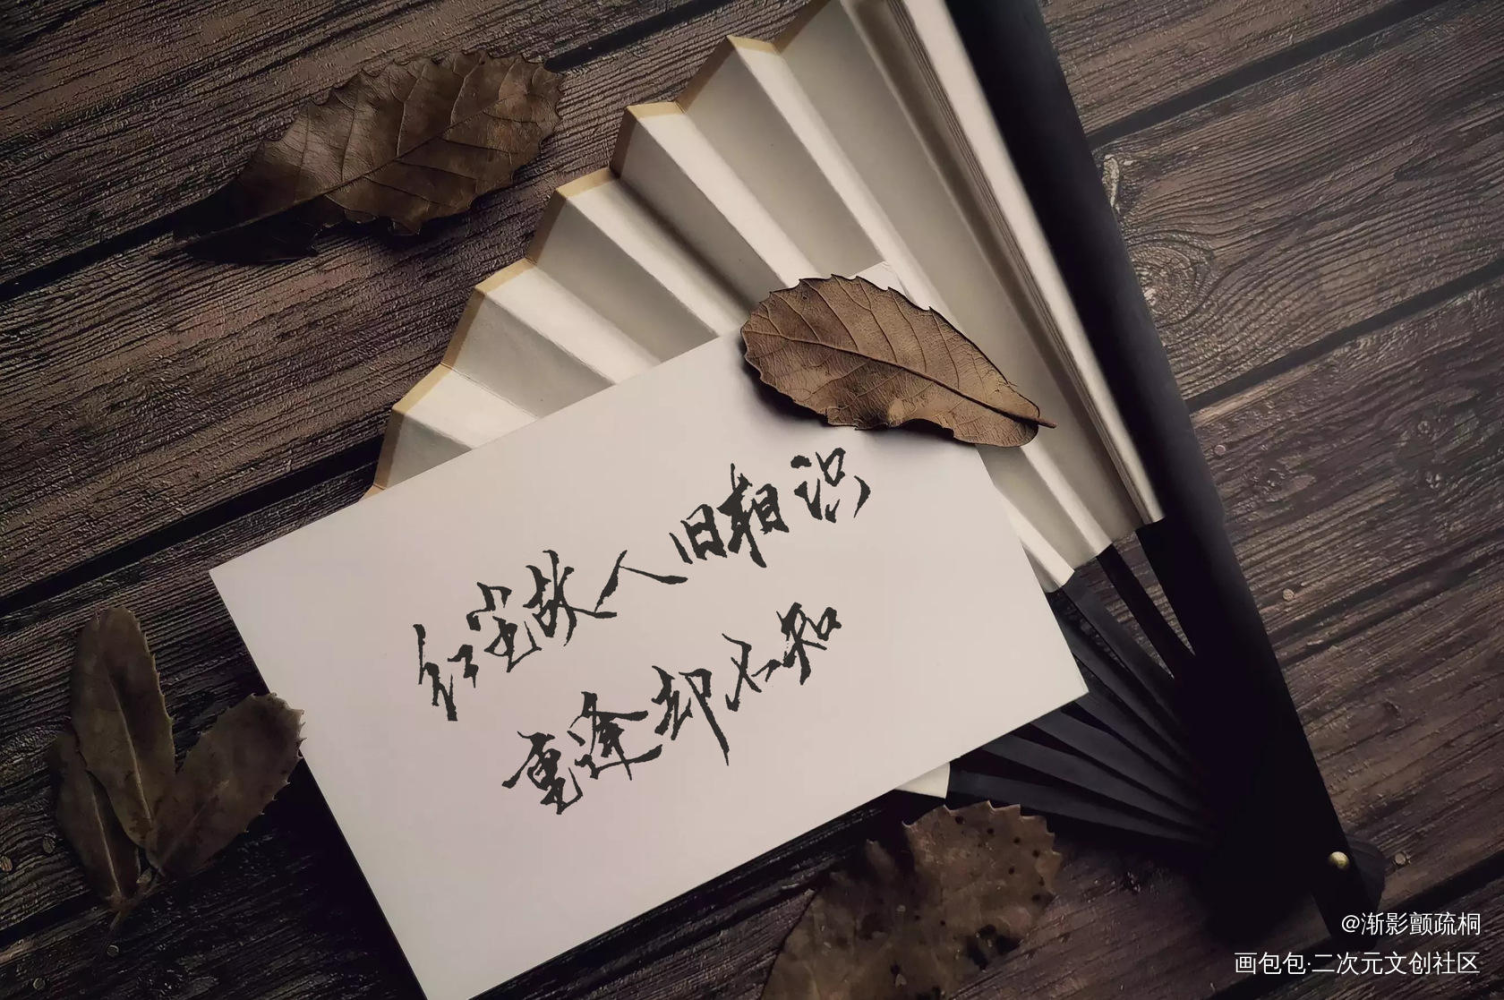 红尘故人旧相识
重逢却不知
@渐影颤疏桐
画包包·二次元文创社区